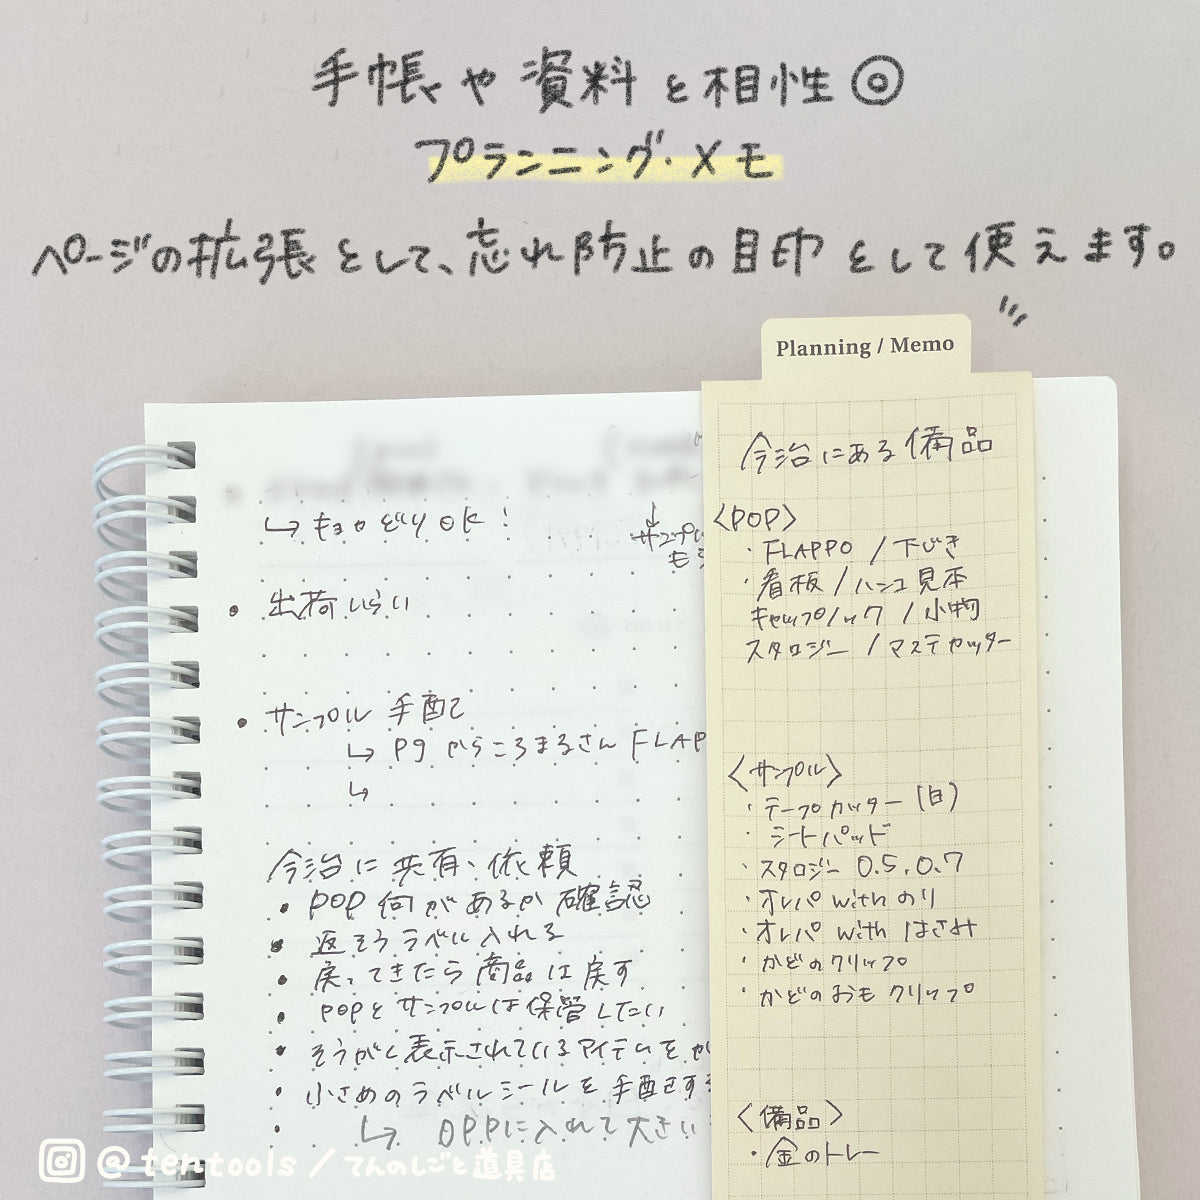 手帳や資料と相性◎
プランニング・メモ
ページの拡張として、忘れ防止の目印として使えます。
Planning / Memo
今治にある備品
<POP>
・FLAPPO / 下じき
・看板 / ハンコ見本
キャップ / ック / 小物
スタロジー / マステカッター
<サンプル>
・テープカッター (白)
・シートパッド
・スタロジー 0.5, 0.7
・オレパ with のり
・オレパ with はさみ
・かどのクリップ
・かどのおもクリップ
<備品>
・金のトレー
↳ OK!
↓
サンプル
も
• 出荷いらい
• サンプル 手配
↳ P9 からころまるさん FLAP
↳
今治に共有、依頼
• POP 何があるか確認
• 返そうラベル入れる
• 戻ってきたら商品は戻す
• POPとサンプルは保管したい
• そうがく表示されているアイテムを
• 小さめのラベルシールを手配する
• ↳ OPPに入れて大きい
@tentools / てんのしごと道具店